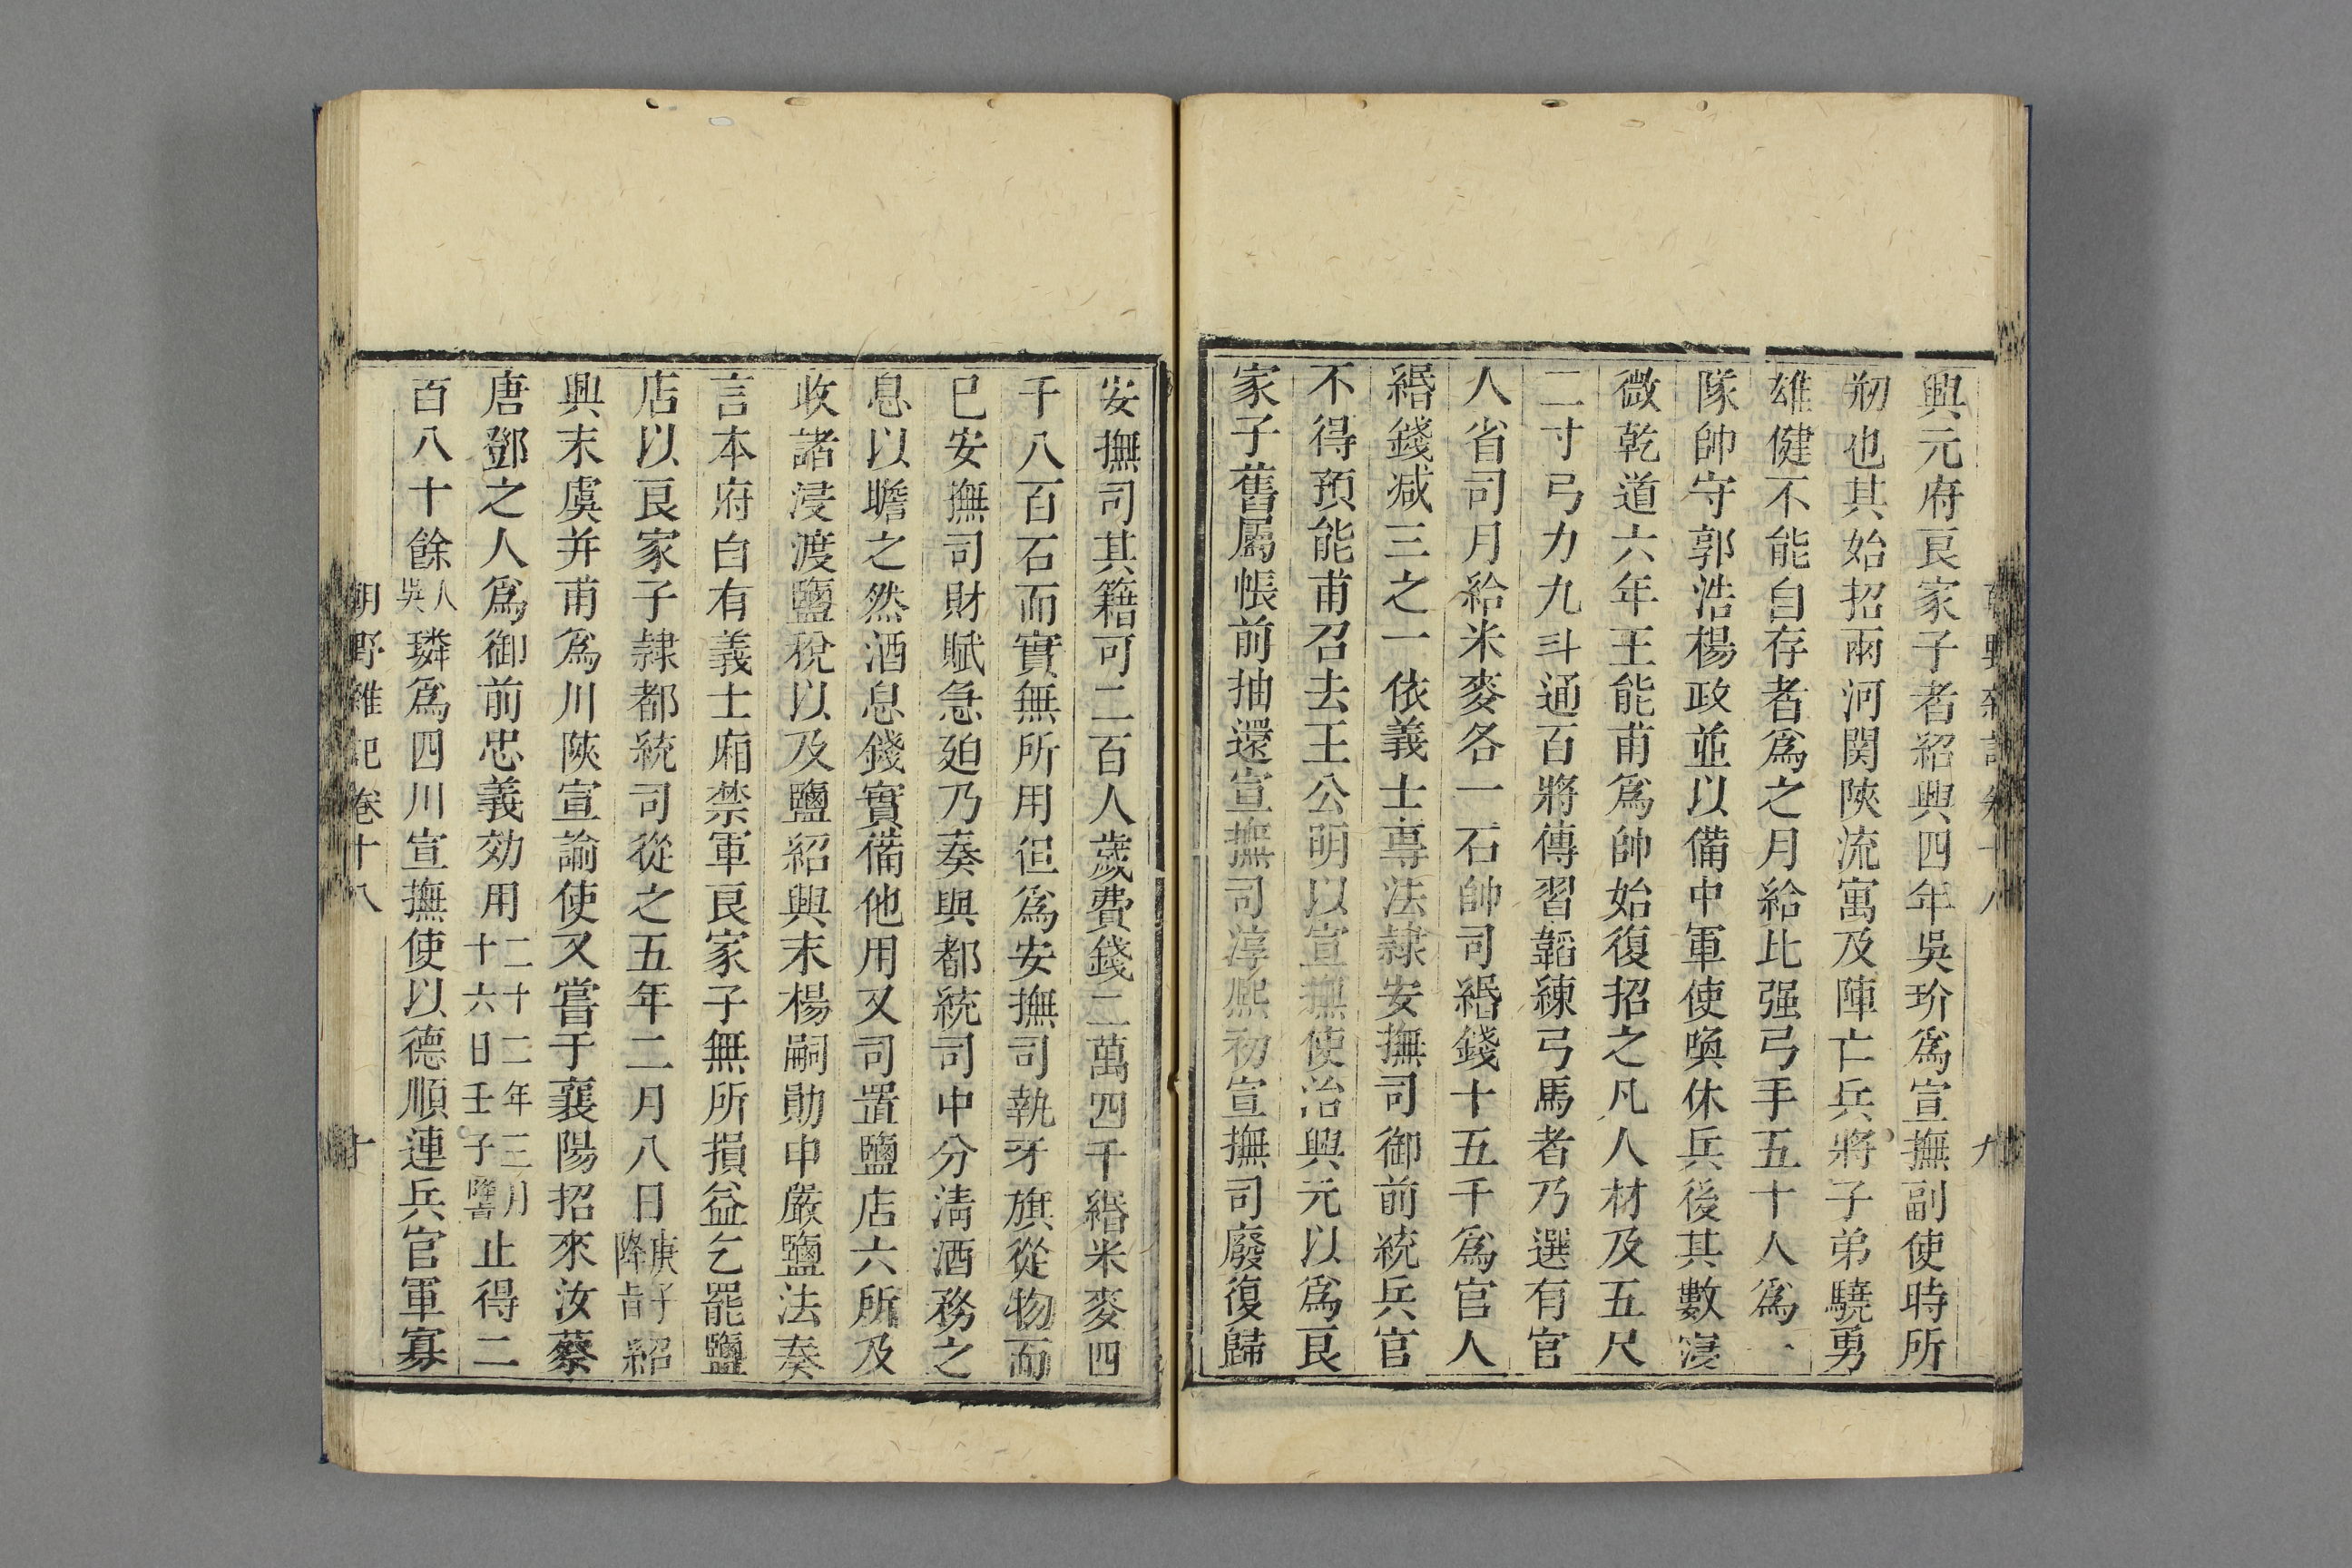 興元府良家子者紹興四年吳玠爲宣撫副使時所
剏也其始招兩河関陝流寓及陣亡兵將子弟驍勇
雄健不能自存者爲之月給比强弓手五十人爲一
隊帥守郭浩楊政並以備中軍使喚休兵後其數寖
微乾道六年王能甫爲帥始復招之凡人材及五尺
二寸弓力九斗通百將傳習韜練弓馬者乃選有官
人省司月給米麥各一石帥司緡錢十五千爲官人
緡錢减三之一依義士專法隷安撫司御前統兵官
不得預能甫召去王公明以宣撫使治興元以爲良
家子舊屬帳前抽還宣撫司淳熙初宣撫司廢復歸
九
安撫司其籍可二百人歲費錢二萬四千緡米麥四
千八百石而實無所用但爲安撫司執牙旗從物而
已安撫司財賦急廹乃奏與都統司中分淸酒務之
息以贍之然酒息錢實備他用又司置鹽店六所及
收諸浸渡鹽稅以及鹽紹興末楊嗣勛申嚴鹽法奏
言本府自有義士廂禁軍良家子無所損益乞罷鹽
店以良家子隷都統司從之五年二月八日庚子降旨紹
興末虞并甫爲川陝宣諭使又嘗于襄陽招來汝蔡
唐鄧之人爲御前忠義効用二十二年三月十六日壬子降旨止得二
百八十餘人吳璘爲四川宣撫使以德順連兵官軍寡
朝野雜記卷十八
十